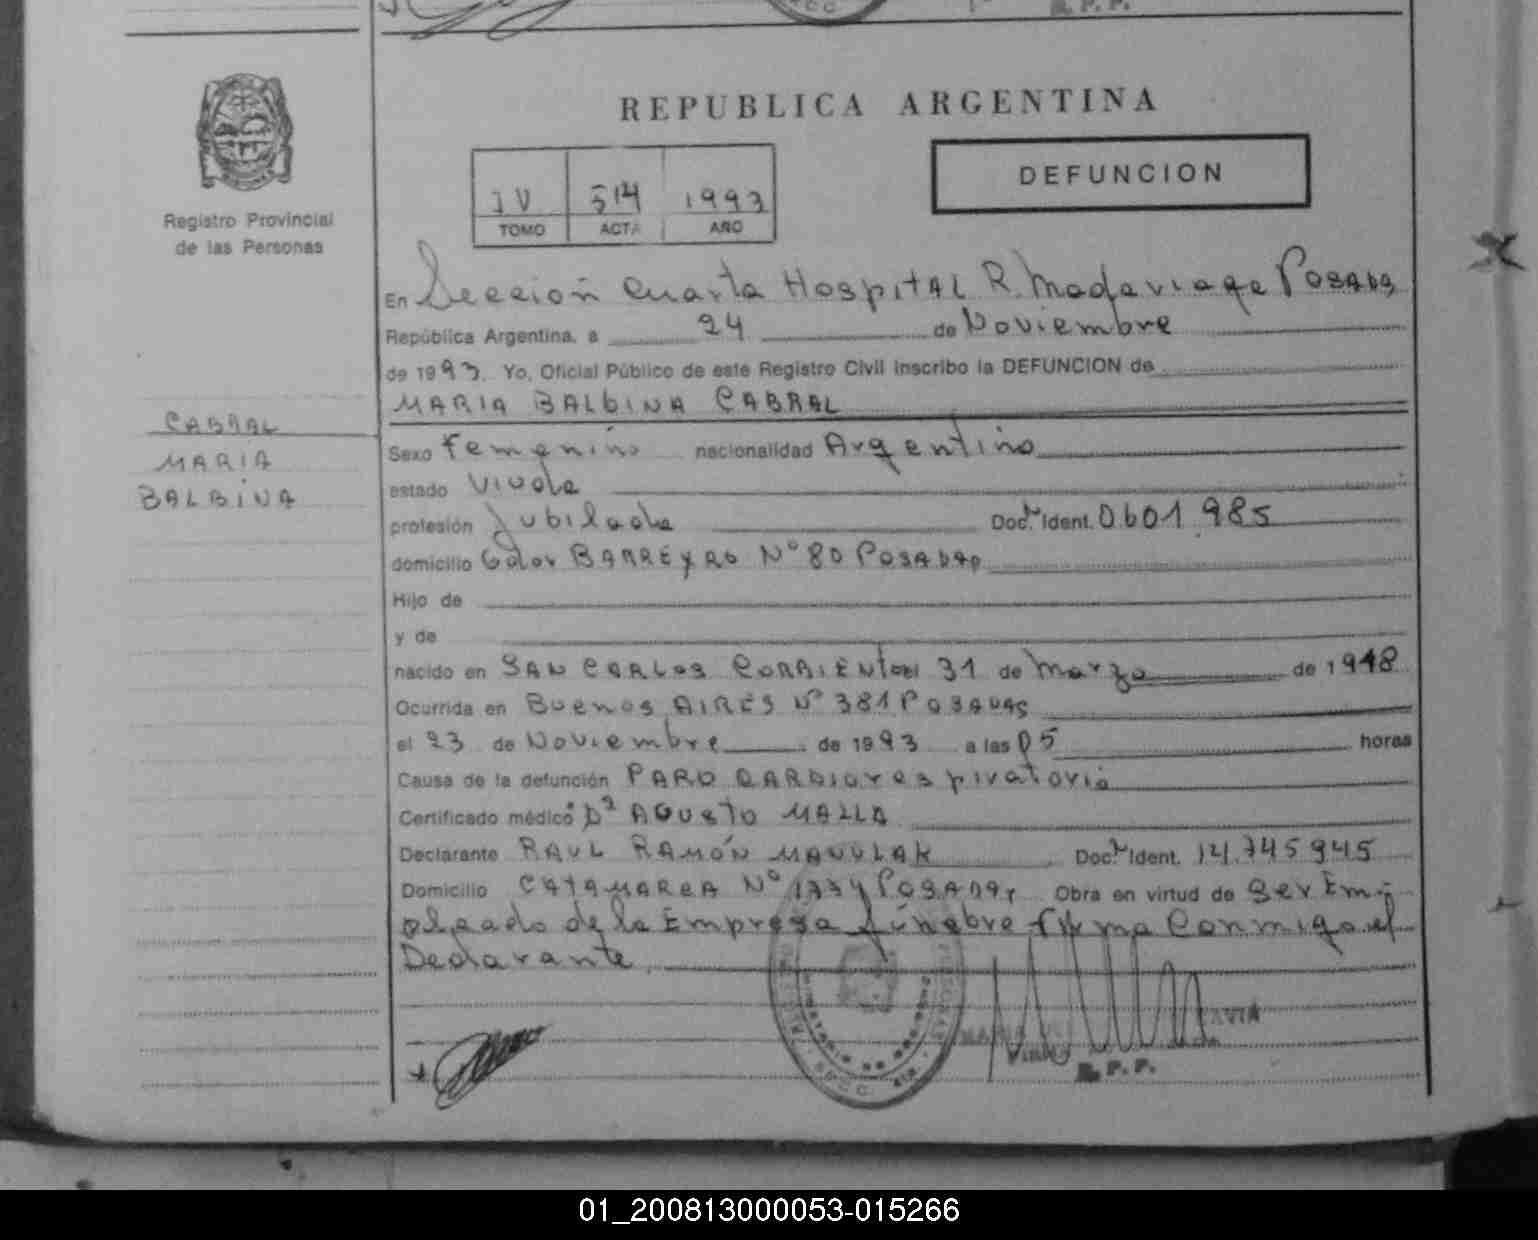 REPUBLICA ARGENTINA
DEFUNCION
IV 514 1993
TOMO ACTA AÑO
Registro Provincial
de las Personas
En Sección Cuarta Hospital R. Madariaga Posadas
República Argentina, a 24 de Noviembre
de 1993. Yo, Oficial Público de este Registro Civil inscribo la DEFUNCION de
MARIA BALBINA CABRAL
CABRAL
MARIA
BALBINA
Sexo Femenino nacionalidad Argentino
estado Viuda
profesión Jubilada Doc. Ident. 0601.985
domicilio Gdor BARREYRO Nº 80 POSADAS
Hijo de
y de
nacido en SAN CARLOS CORRIENTES el 31 de Marzo de 1918
Ocurrida en Buenos AIRES Nº 381 POSADAS
el 23 de Noviembre de 1993 a las 05 horas
Causa de la defunción PARO CARDIOrespiratorio
Certificado médico Dr AGUSTO MAZZA
Declarante RAUL RAMÓN MANULAK Doc. Ident. 14.745945
Domicilio CATAMARCA Nº 1734 POSADAS Obra en virtud de Ser Em-
pleado de la Empresa fúnebre firma Conmigo el
Declarante
R. P. P.
01_200813000053-015266